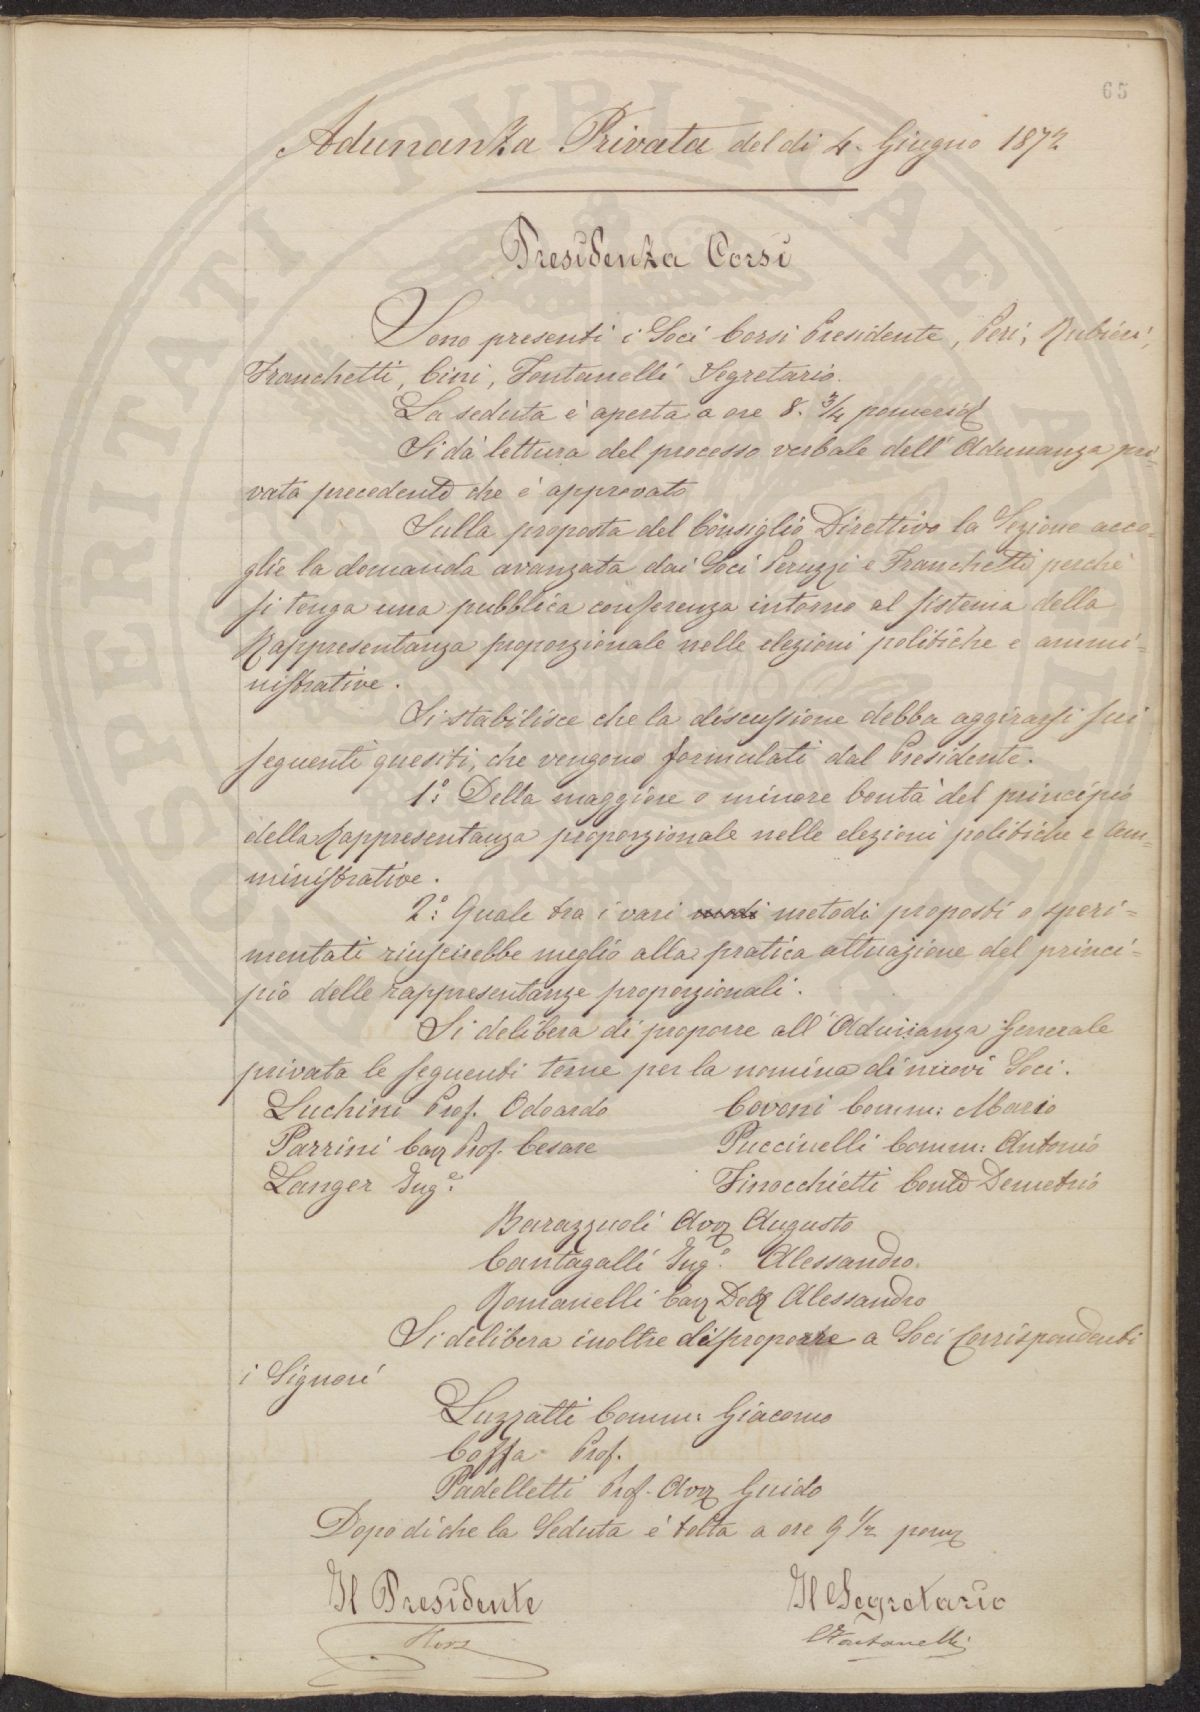 65
Adunanza Privata del dì 4. Giugno 1872
Presidenza Corsi
Sono presenti i Soci Corsi Presidente, Peri, Rubieri,
Franchetti, Cini, Fontanelli Segretario.
La seduta è aperta a ore 8. 3/4 pomerid
Si dà lettura del processo verbale dell'Adunanza pri-
vata precedente che è approvato
Sulla proposta del Consiglio Direttivo la Sezione acco-
glie la domanda avanzata dai Soci Peruzzi e Franchetti perchè
si tenga una pubblica conferenza intorno al sistema della
Rappresentanza proporzionale nelle elezioni politiche e ammi=
nistrative.
Si stabilisce che la discussione debba aggirarsi sui
seguenti quesiti, che vengono formulati dal Presidente.
1º: Della maggiore o minore bontà del principio
della Rappresentanza proporzionale nelle elezioni politiche e am-
ministrative.
2º: Quale tra i vari modi metodi proposti o speri=
mentati riuscirebbe meglio alla pratica attuazione del princi=
pio delle rappresentanze proporzionali.
Si delibera di proporre all'Adunanza Generale
privata le seguenti terne per la nomina di nuovi Soci.
Luchini Prof. Odoardo Covoni Comm: Mario
Parrini Cav Prof. Cesare Puccinelli Comm: Antonio
Langer Ing.e: Finocchietti Conte Demetrio
Barazzuoli Avv Augusto
Cantagalli Ing.e Alessandro.
Romanelli Cav Dott Alessandro
Si delibera inoltre di proporre a Soci Corrispondenti
i Signori
Luzzatti Comm: Giacomo
Cossa Prof.
Padelletti Prof. Avv Guido
Dopo di che la Seduta è tolta a ore 9 1/2 pom
Il Presidente Il Segretario
Corsi CFontanelli
SPERITATI PVBLICAE